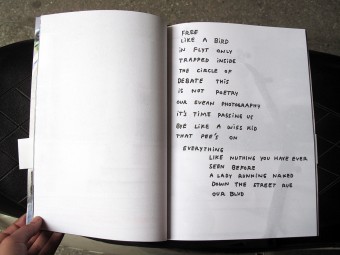 FREE
LIKE A BIRD
IN FLYT ONLY
TRAPPED INSIDE
THE CIRCLE OF
DEBATE THIS
IS NOT POETRY
OUR EVEAN PHOTOGRAPHY
IT'S TIME PASSING US
BYE LIKE A WISS KID
THAT PEE'S ON
EVERYTHING
LIKE NUTHING YOU HAVE EVER
SEEN BEFORE
A LADY RUNNING NAKED
DOWN THE STREET OUR
OUR BLVD